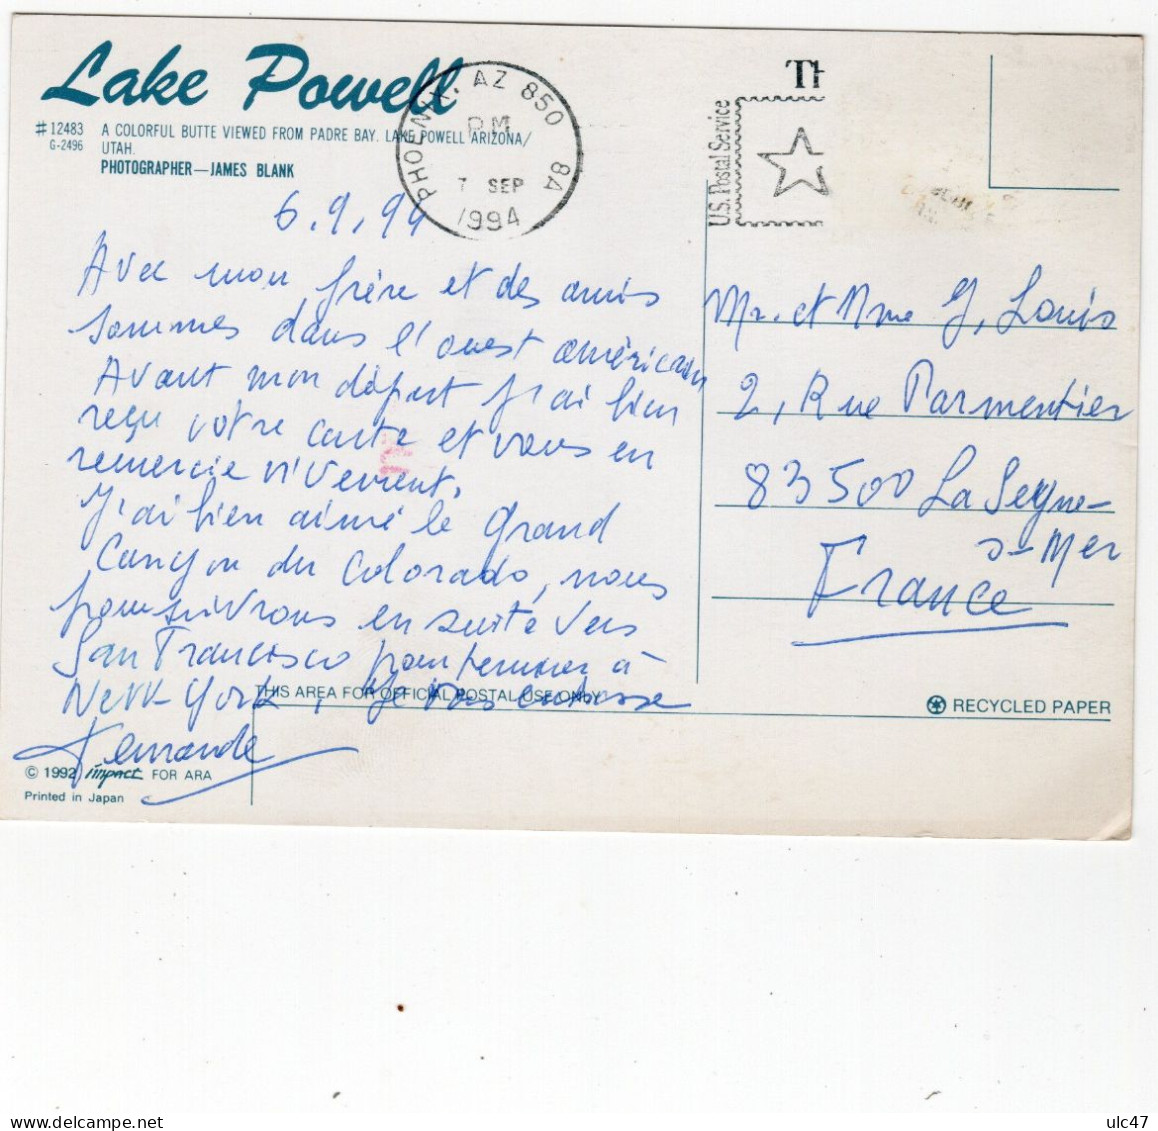 Lake Powell
#12483 A COLORFUL BUTTE VIEWED FROM PADRE BAY. LAKE POWELL ARIZONA/
G-2496 UTAH.
PHOTOGRAPHER—JAMES BLANK
PHOENIX, AZ 850 8A
PM
7 SEP
1994
U.S. Postal Service
TH
6.9,94
Avec mon frère et des amis
sommes dans l'ouest américain
Avant mon départ j'ai bien
reçu votre carte et vous en
remercie vivement.
J'ai bien aimé le Grand
Canyon du Colorado, nous
poursuivrons en suite vers
San Francisco pour terminer à
New York, Je vous embrasse
Fernande
Mr. et Mme G, Louis
2, Rue Parmentier
83500 La Seyne-
s-Mer
France
THIS AREA FOR OFFICIAL POSTAL USE ONLY
RECYCLED PAPER
© 1992 impact FOR ARA
Printed in Japan
ulc47